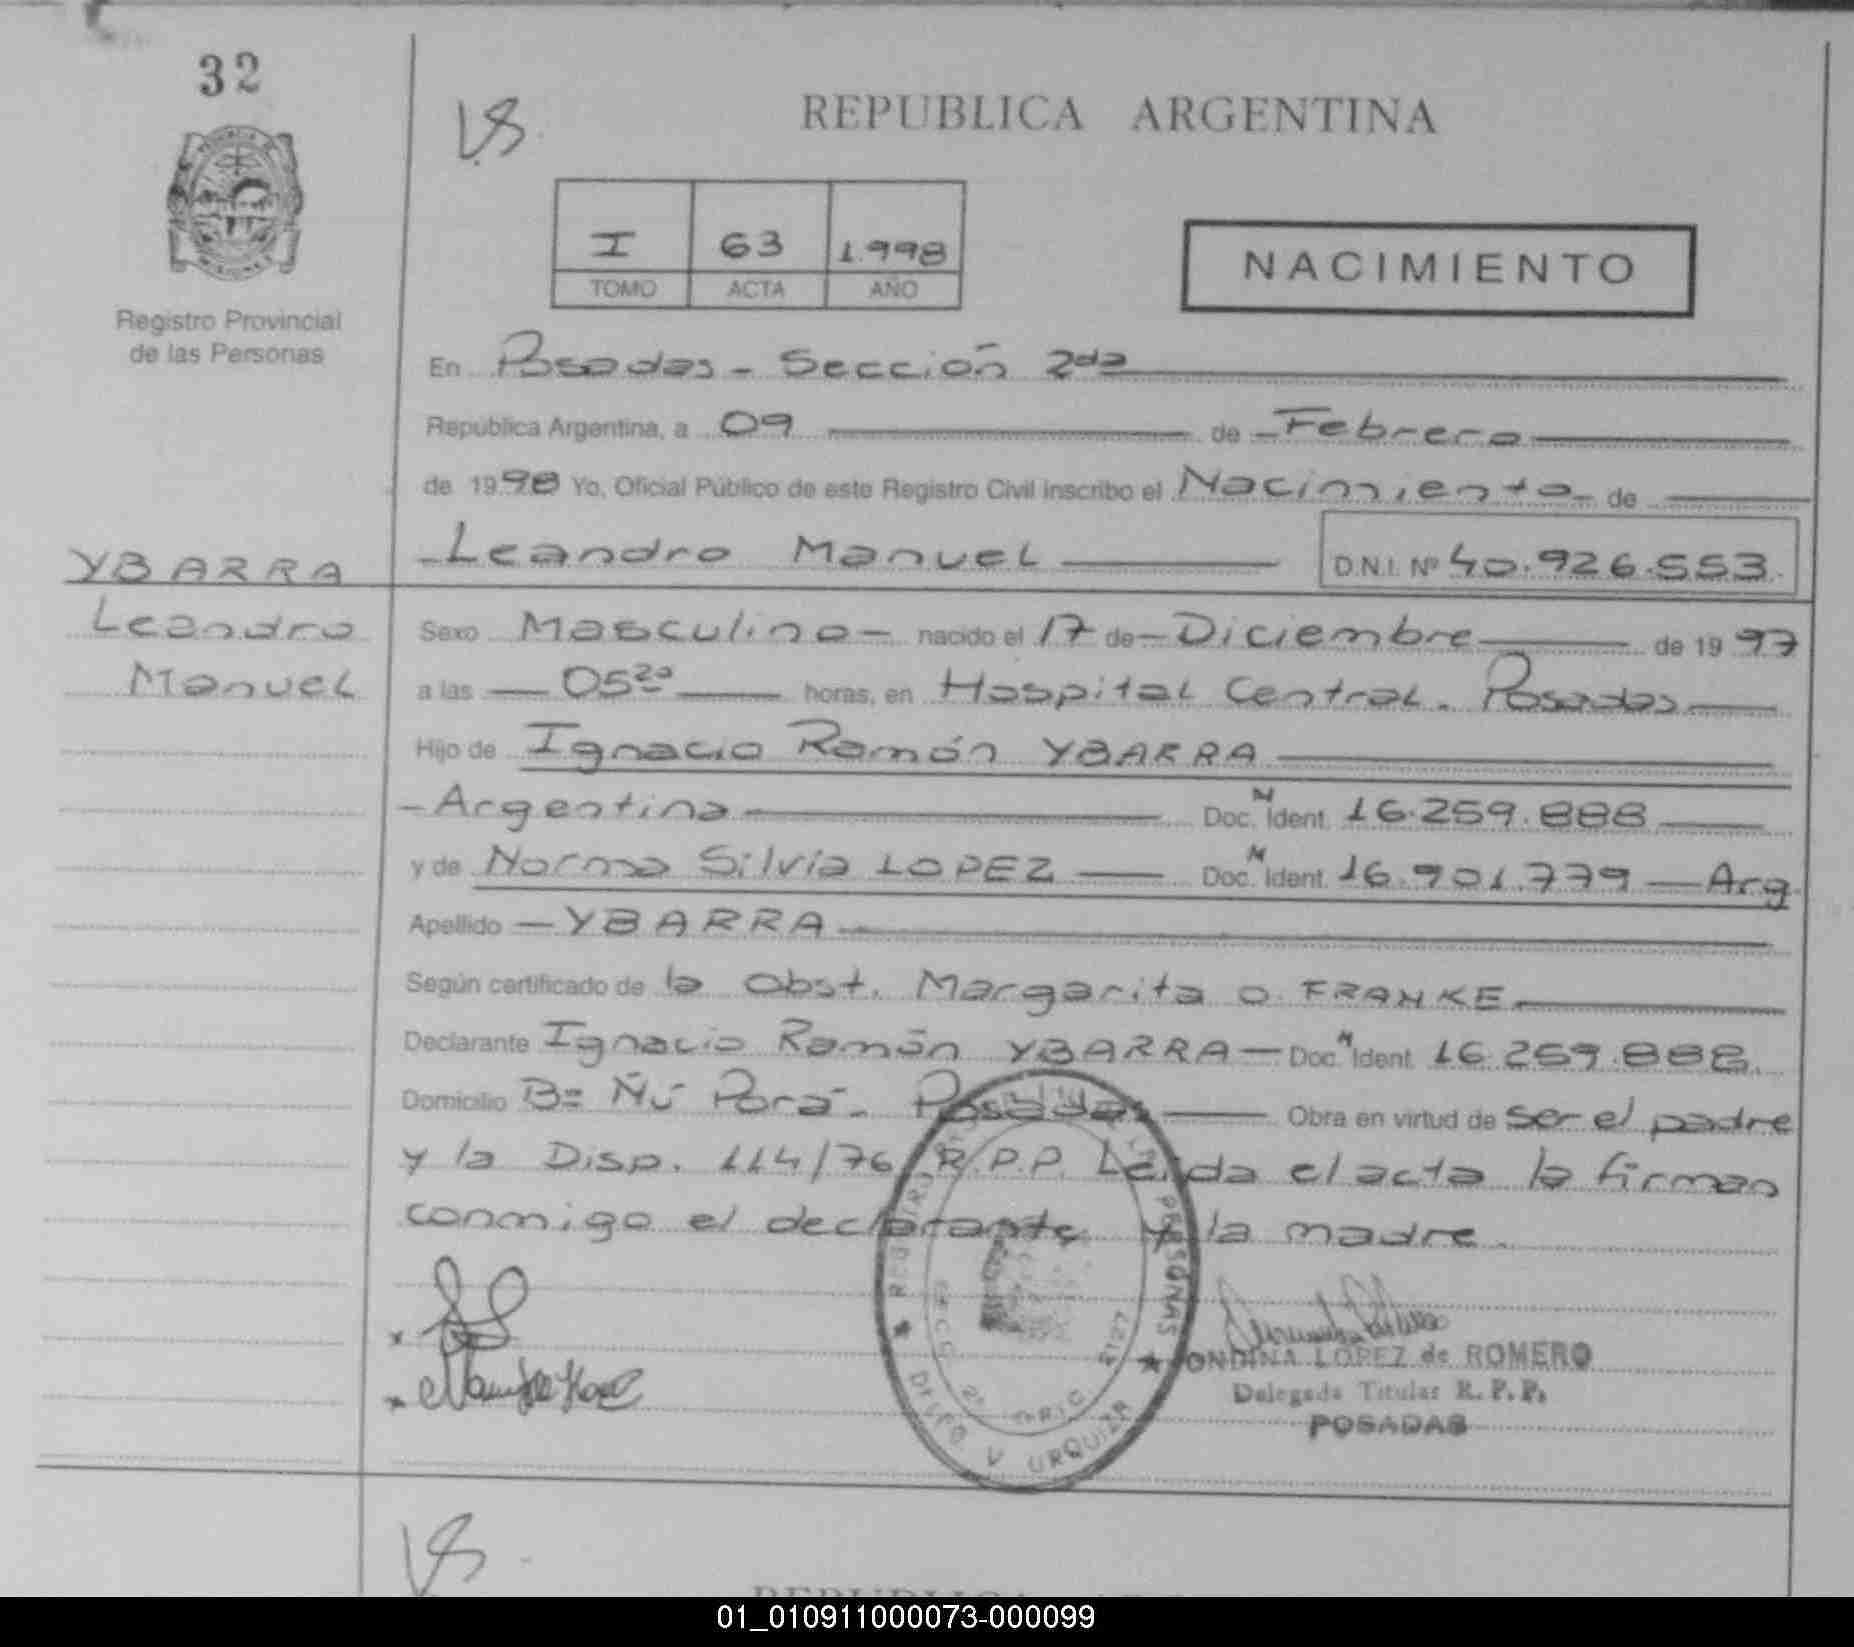 32
VS
REPUBLICA ARGENTINA
I 63 1.998
TOMO ACTA AÑO
NACIMIENTO
Registro Provincial
de las Personas
En Posadas - Sección 2da
República Argentina, a 09 de Febrero
de 1998 Yo, Oficial Público de este Registro Civil inscribo el Nacimiento de
Leandro Manuel D.N.I. Nº 40.926.553
YBARRA
Leandro
Manuel
Sexo Masculino - nacido el 17 de Diciembre de 1997
a las 05 20 horas, en Hospital Central. Posadas
Hijo de Ignacio Ramón YBARRA
Argentina Doc. N Ident. 16.259.888
y de Norma Silvia LOPEZ Doc. N Ident. 16.901.779 - Arg
Apellido - YBARRA
Según certificado de la Obst. Margarita O. FRANKE
Declarante Ignacio Ramón YBARRA - Doc. N Ident. 16.259.888.
Domicilio Bº Ñú Porá - Posadas Obra en virtud de ser el padre
y la Disp. 114/76 R.P.P. Leida el acta la firman
conmigo el declarante y la madre.
PERSONAS
URQUIZA
ONDINA LOPEZ de ROMERO
Delegada Titular R.P.P.
POSADAS
VS
01_010911000073-000099